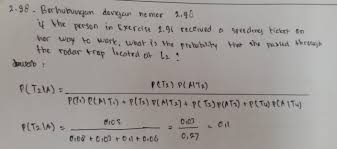 2.98. Berhubungan dengan nomer 2.98
if the person in Exercise 2.96 received a speeding ticket on
her way to work, what is the probability that she passed through
the radar trap located at L2 ?
Jawab :
P(T2|A) = P(T2) P(A|T2)
P(T1) P(A|T1) + P(T2) P(A|T2) + P(T3) P(A|T3) + P(T4) P(A|T4)
P(T2|A) = 0.03 / 0.08 + 0.03 + 0.1 + 0.06 = 0.03 / 0,27 = 0.11